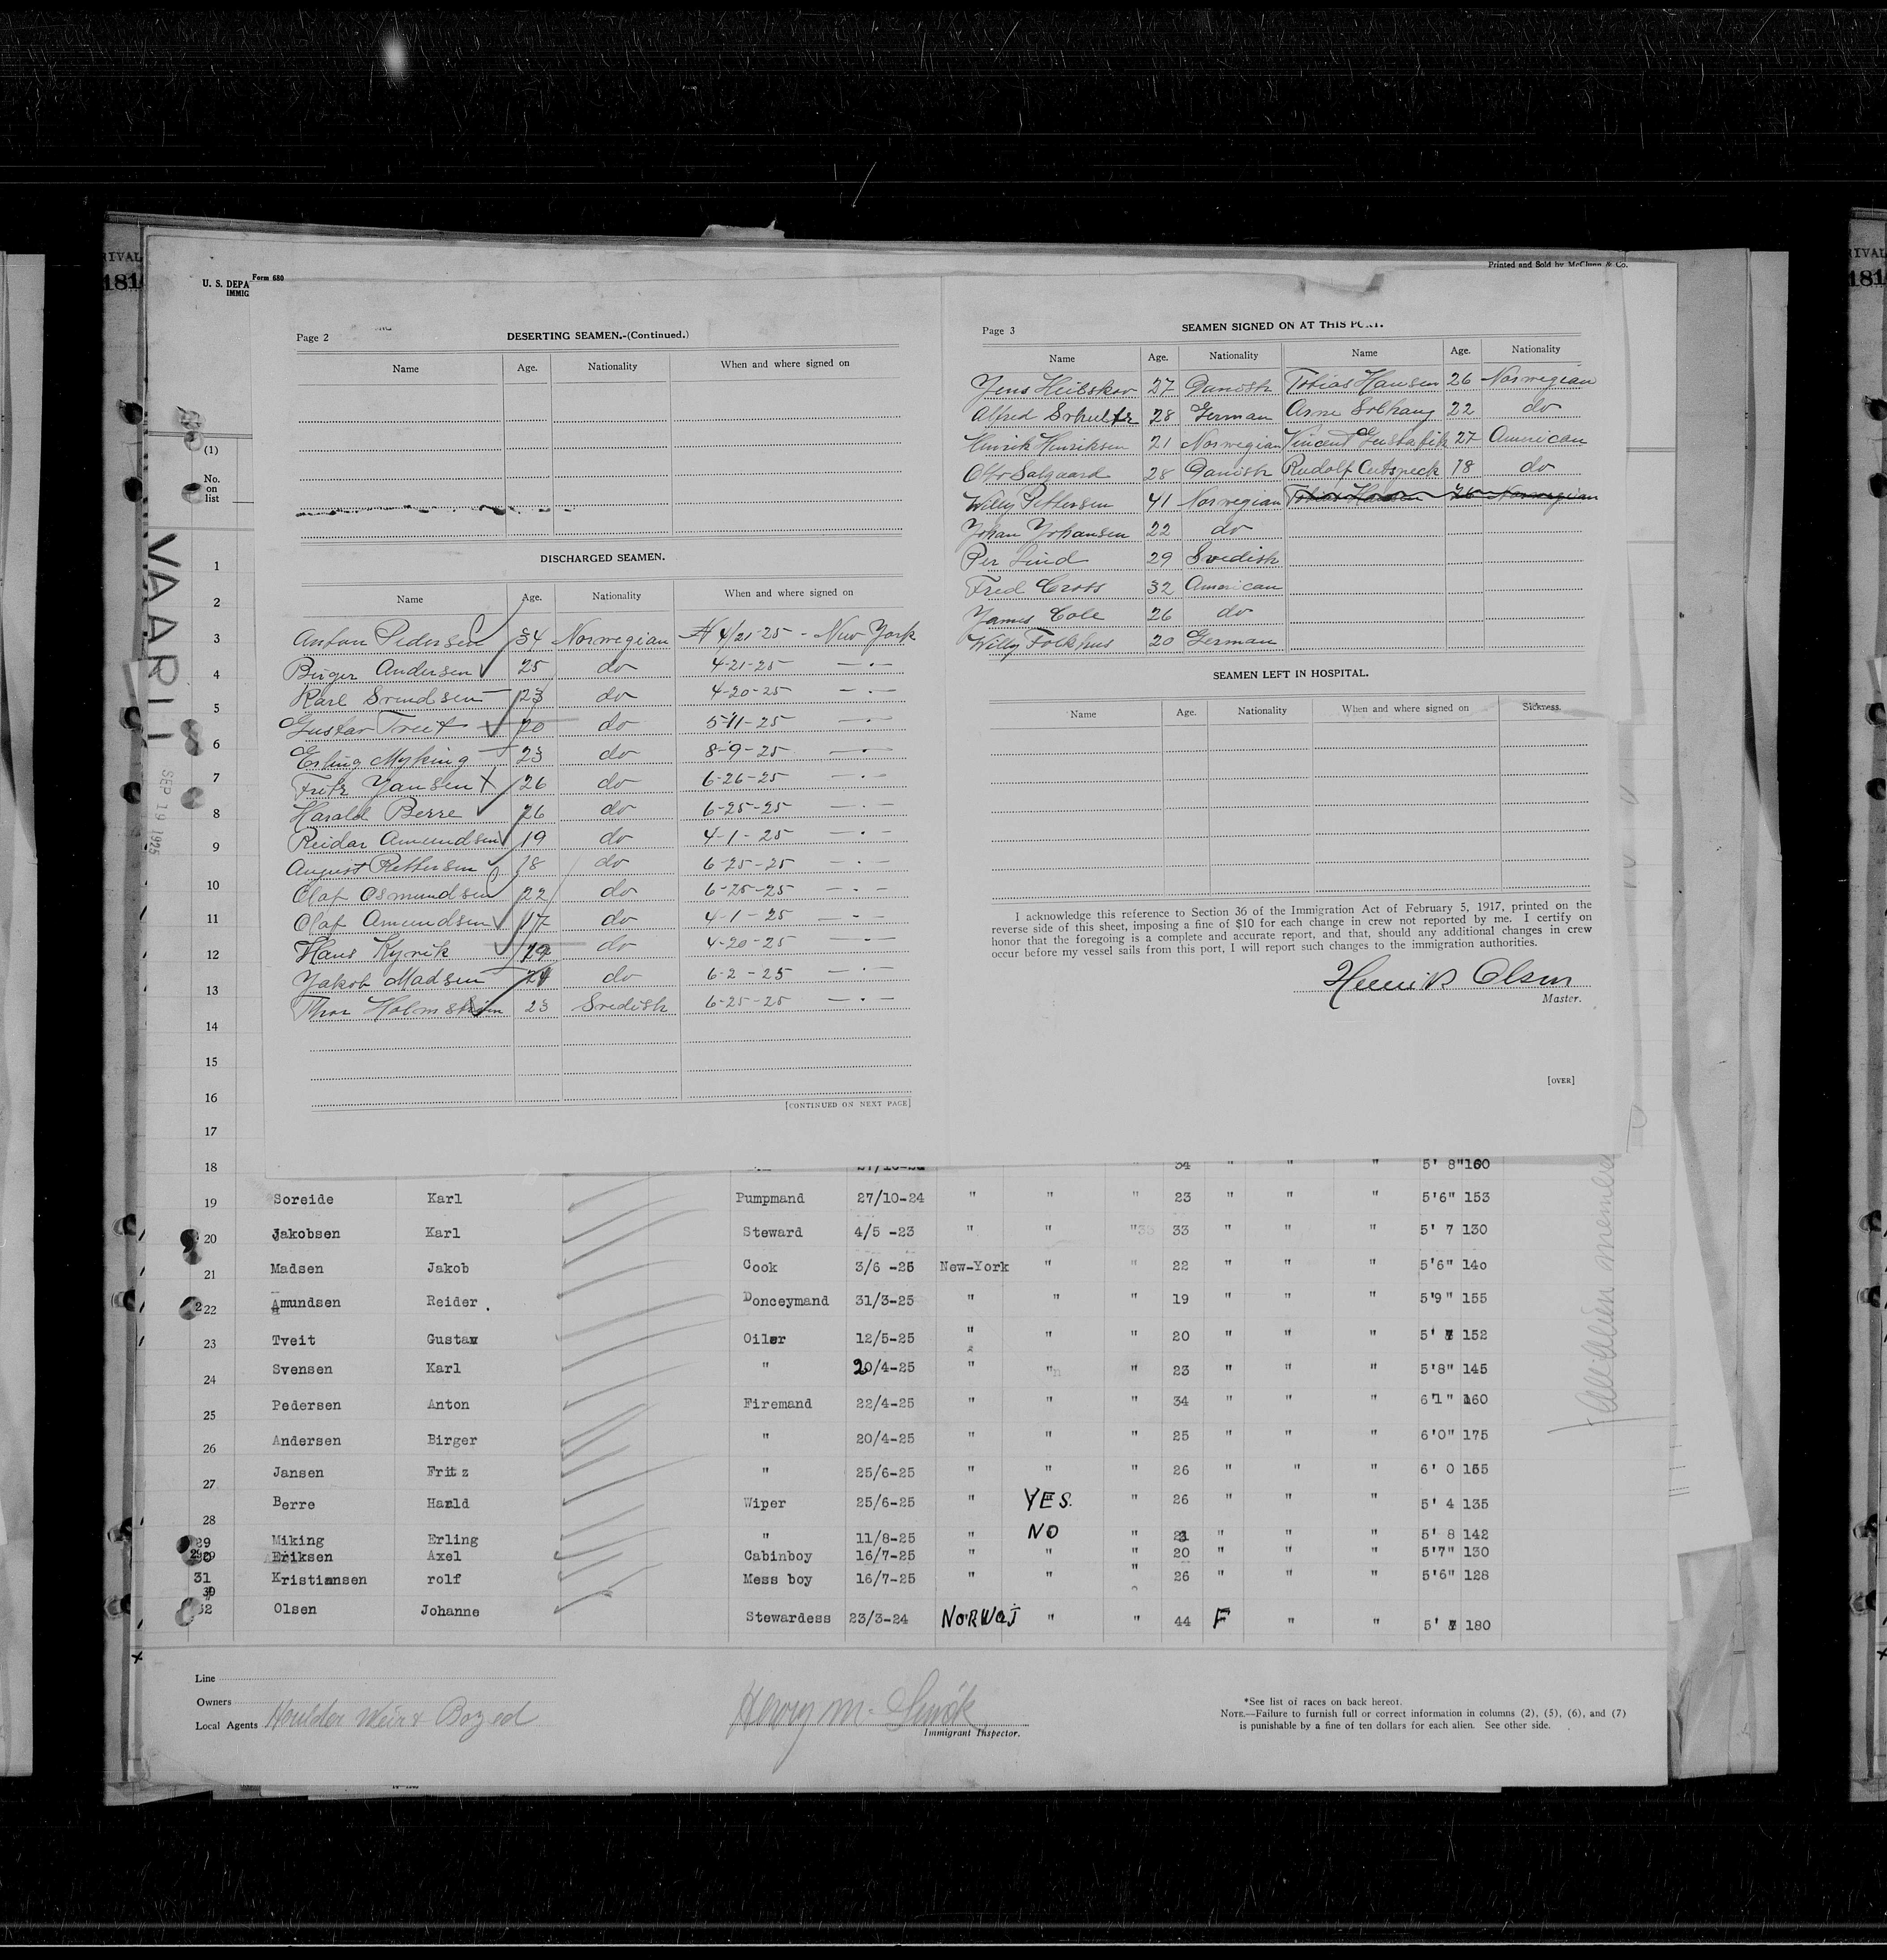 RIVAL
181
U. S. DEPA
IMMIG
Form 680
Printed and Sold by McClunn & Co.
(1)
No.
on
list
VAARLI
SEP 19 1925
Page 2
DESERTING SEAMEN.-(Continued.)
Name Age. Nationality When and where signed on
DISCHARGED SEAMEN.
Name Age. Nationality When and where signed on
Anton Pedersen 34 Norwegian 4/21-25 - New York
Birger Andersen 25 do 4-21-25 — · —
Karl Svendsen 23 do 4-20-25 — · —
Gustav Treit 20 do 5-11-25 — · —
Erling Myking 23 do 8-9-25 — · —
Fritz Yansen X 26 do 6-26-25 — · —
Harald Berre 26 do 6-25-25 — · —
Reidar Amundsen 19 do 4-1-25 — · —
August Pettersen 18 do 6-25-25 — · —
Olaf Osmundsen 22 do 6-25-25 — · —
Olaf Amundsen 17 do 4-1-25 — · —
Hans Kyrvik 19 do 4-20-25 — · —
Yakob Madsen 24 do 6-2-25 — · —
Thor Holmstrøm 23 Svedish 6-25-25 — · —
[CONTINUED ON NEXT PAGE]
Page 3
SEAMEN SIGNED ON AT THIS PORT.
Name Age. Nationality Name Age. Nationality
Yens Heilskov 27 Danish Tobias Hansen 26 Norwegian
Alfred Schultz 28 German Arne Solhaug 22 do
Henrik Henriksen 21 Norwegian Vincent 27 American
Otto Salgaard 28 Danish Rudolf Cutspeck 18 do
Willy Pettersen 41 Norwegian Tobias Hansen 26 Norwegian
Johan Johansen 22 do
Per Lind 29 Svedish
Fred Cross 32 American
Yames Cole 26 do
Willy Folkhus 20 German
SEAMEN LEFT IN HOSPITAL.
Name Age. Nationality When and where signed on Sickness.
I acknowledge this reference to Section 36 of the Immigration Act of February 5, 1917, printed on the
reverse side of this sheet, imposing a fine of $10 for each change in crew not reported by me. I certify on
honor that the foregoing is a complete and accurate report, and that, should any additional changes in crew
occur before my vessel sails from this port, I will report such changes to the immigration authorities.
Henrik Olsen
Master.
[OVER]
1
2
3
4
5
6
7
8
9
10
11
12
13
14
15
16
17
18 34 " " " 5' 8" 160
19 Soreide Karl Pumpmand 27/10-24 " " " 23 " " " 5'6" 153
20 Jakobsen Karl Steward 4/5 -23 " " " 33 " " " 5' 7 130
21 Madsen Jakob Cook 3/6 -25 New-York " " 22 " " " 5'6" 140
22 Amundsen Reider . Donceymand 31/3-25 " " " 19 " " " 5'9" 155
23 Tveit Gustav Oiler 12/5-25 " " " 20 " " " 5' 7 152
24 Svensen Karl " 20/4-25 " " " 23 " " " 5'8" 145
25 Pedersen Anton Firemand 22/4-25 " " " 34 " " " 6'1" 160
26 Andersen Birger " 20/4-25 " " " 25 " " " 6'0" 175
27 Jansen Fritz " 25/6-25 " " " 26 " " " 6' 0 155
28 Berre Harald Wiper 25/6-25 " YES. " 26 " " " 5' 4 135
29 Miking Erling " 11/8-25 " NO " " " " 5' 8 142
30 Eriksen Axel Cabinboy 16/7-25 " " " 20 " " " 5'7" 130
31 Kristiansen rolf Mess boy 16/7-25 " " " 26 " " " 5'6" 128
32 Olsen Johanne Stewardess 23/3-24 NORWAJ " " 44 F " " 5' 7 180
Line
Owners
Local Agents Houlder Weir & Boyed
Immigrant Inspector.
*See list of races on back hereof.
NOTE.—Failure to furnish full or correct information in columns (2), (5), (6), and (7)
is punishable by a fine of ten dollars for each alien. See other side.